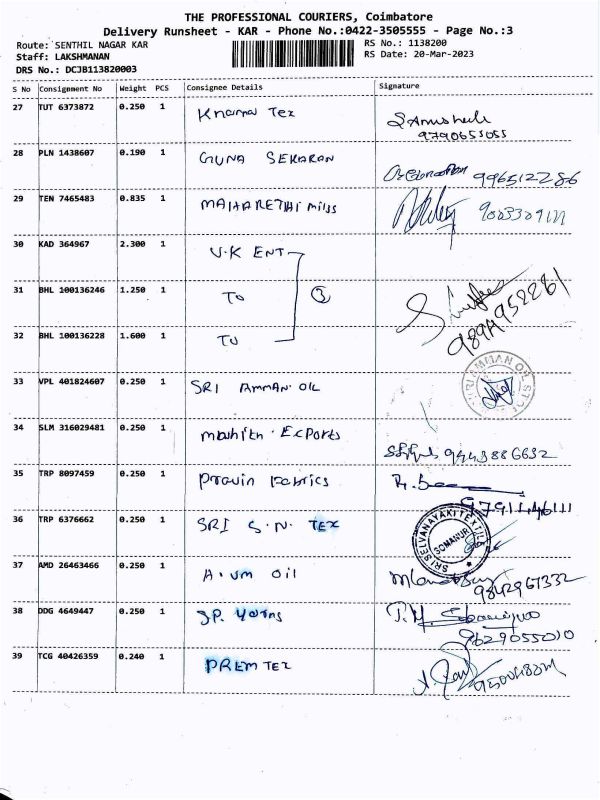 THE PROFESSIONAL COURIERS, Coimbatore
Delivery Runsheet - KAR - Phone No.:0422-3505555 - Page No.:3
Route: SENTHIL NAGAR KAR
RS No.: 1138200
Staff: LAKSHMANAN
RS Date: 20-Mar-2023
DRS No.: DCJB113820003
S No Consignment No Weight PCS Consignee Details Signature
27 TUT 6373872 0.250 1 Knama Tex
9790655055
28 PLN 1438607 0.190 1 GUNA SEKARAN
9965122286
29 TEN 7465483 0.835 1 MAHARETHI mills
30 KAD 364967 2.300 1 V.K ENT
31 BHL 100136246 1.250 1 To 3
32 BHL 100136228 1.600 1 To
33 VPL 401824607 0.250 1 SRI AMMAN OIL
34 SLM 316029481 0.250 1 mahith. Exports
9443886632
35 TRP 8097459 0.250 1 Pravin Fabrics
36 TRP 6376662 0.250 1 SRI S.N. TEX
SRI SELVANAYAKI TEXTILE
SOMANUR
37 AMD 26463466 0.250 1 A.vm oil
9842961332
38 DDG 4649447 0.250 1 SP. Yarns
9629055010
39 TCG 40426359 0.240 1 PREM TEX